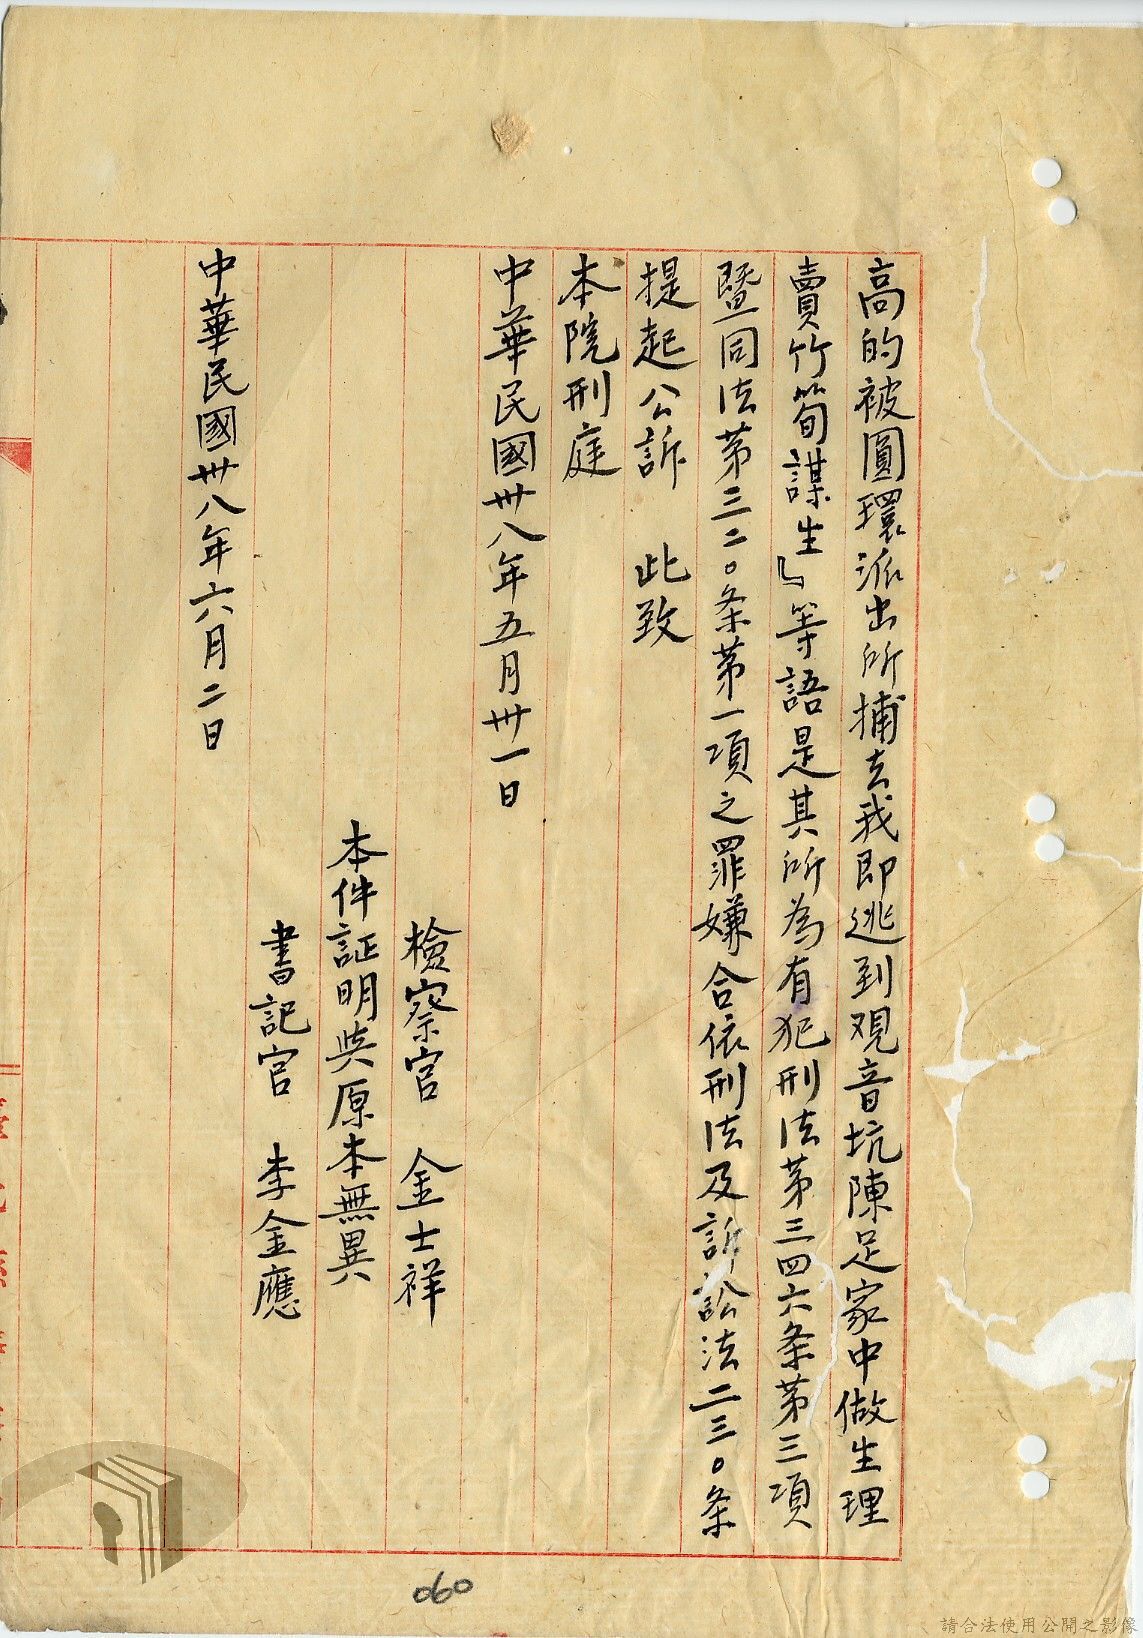 高的被圓環派出所捕去我即逃到观音坑陳足家中做生理
賣竹筍謀生』等語是其所為有犯刑法第三四六条第三項
暨同法第三二〇条第一項之罪嫌合依刑法及訴訟法二三〇条
提起公訴　此致
本院刑庭
中華民國卅八年五月卅一日
檢察官　金士祥
本件証明與原本無異
書記官　李金應
中華民國卅八年六月二日
060
請合法使用公開之影像